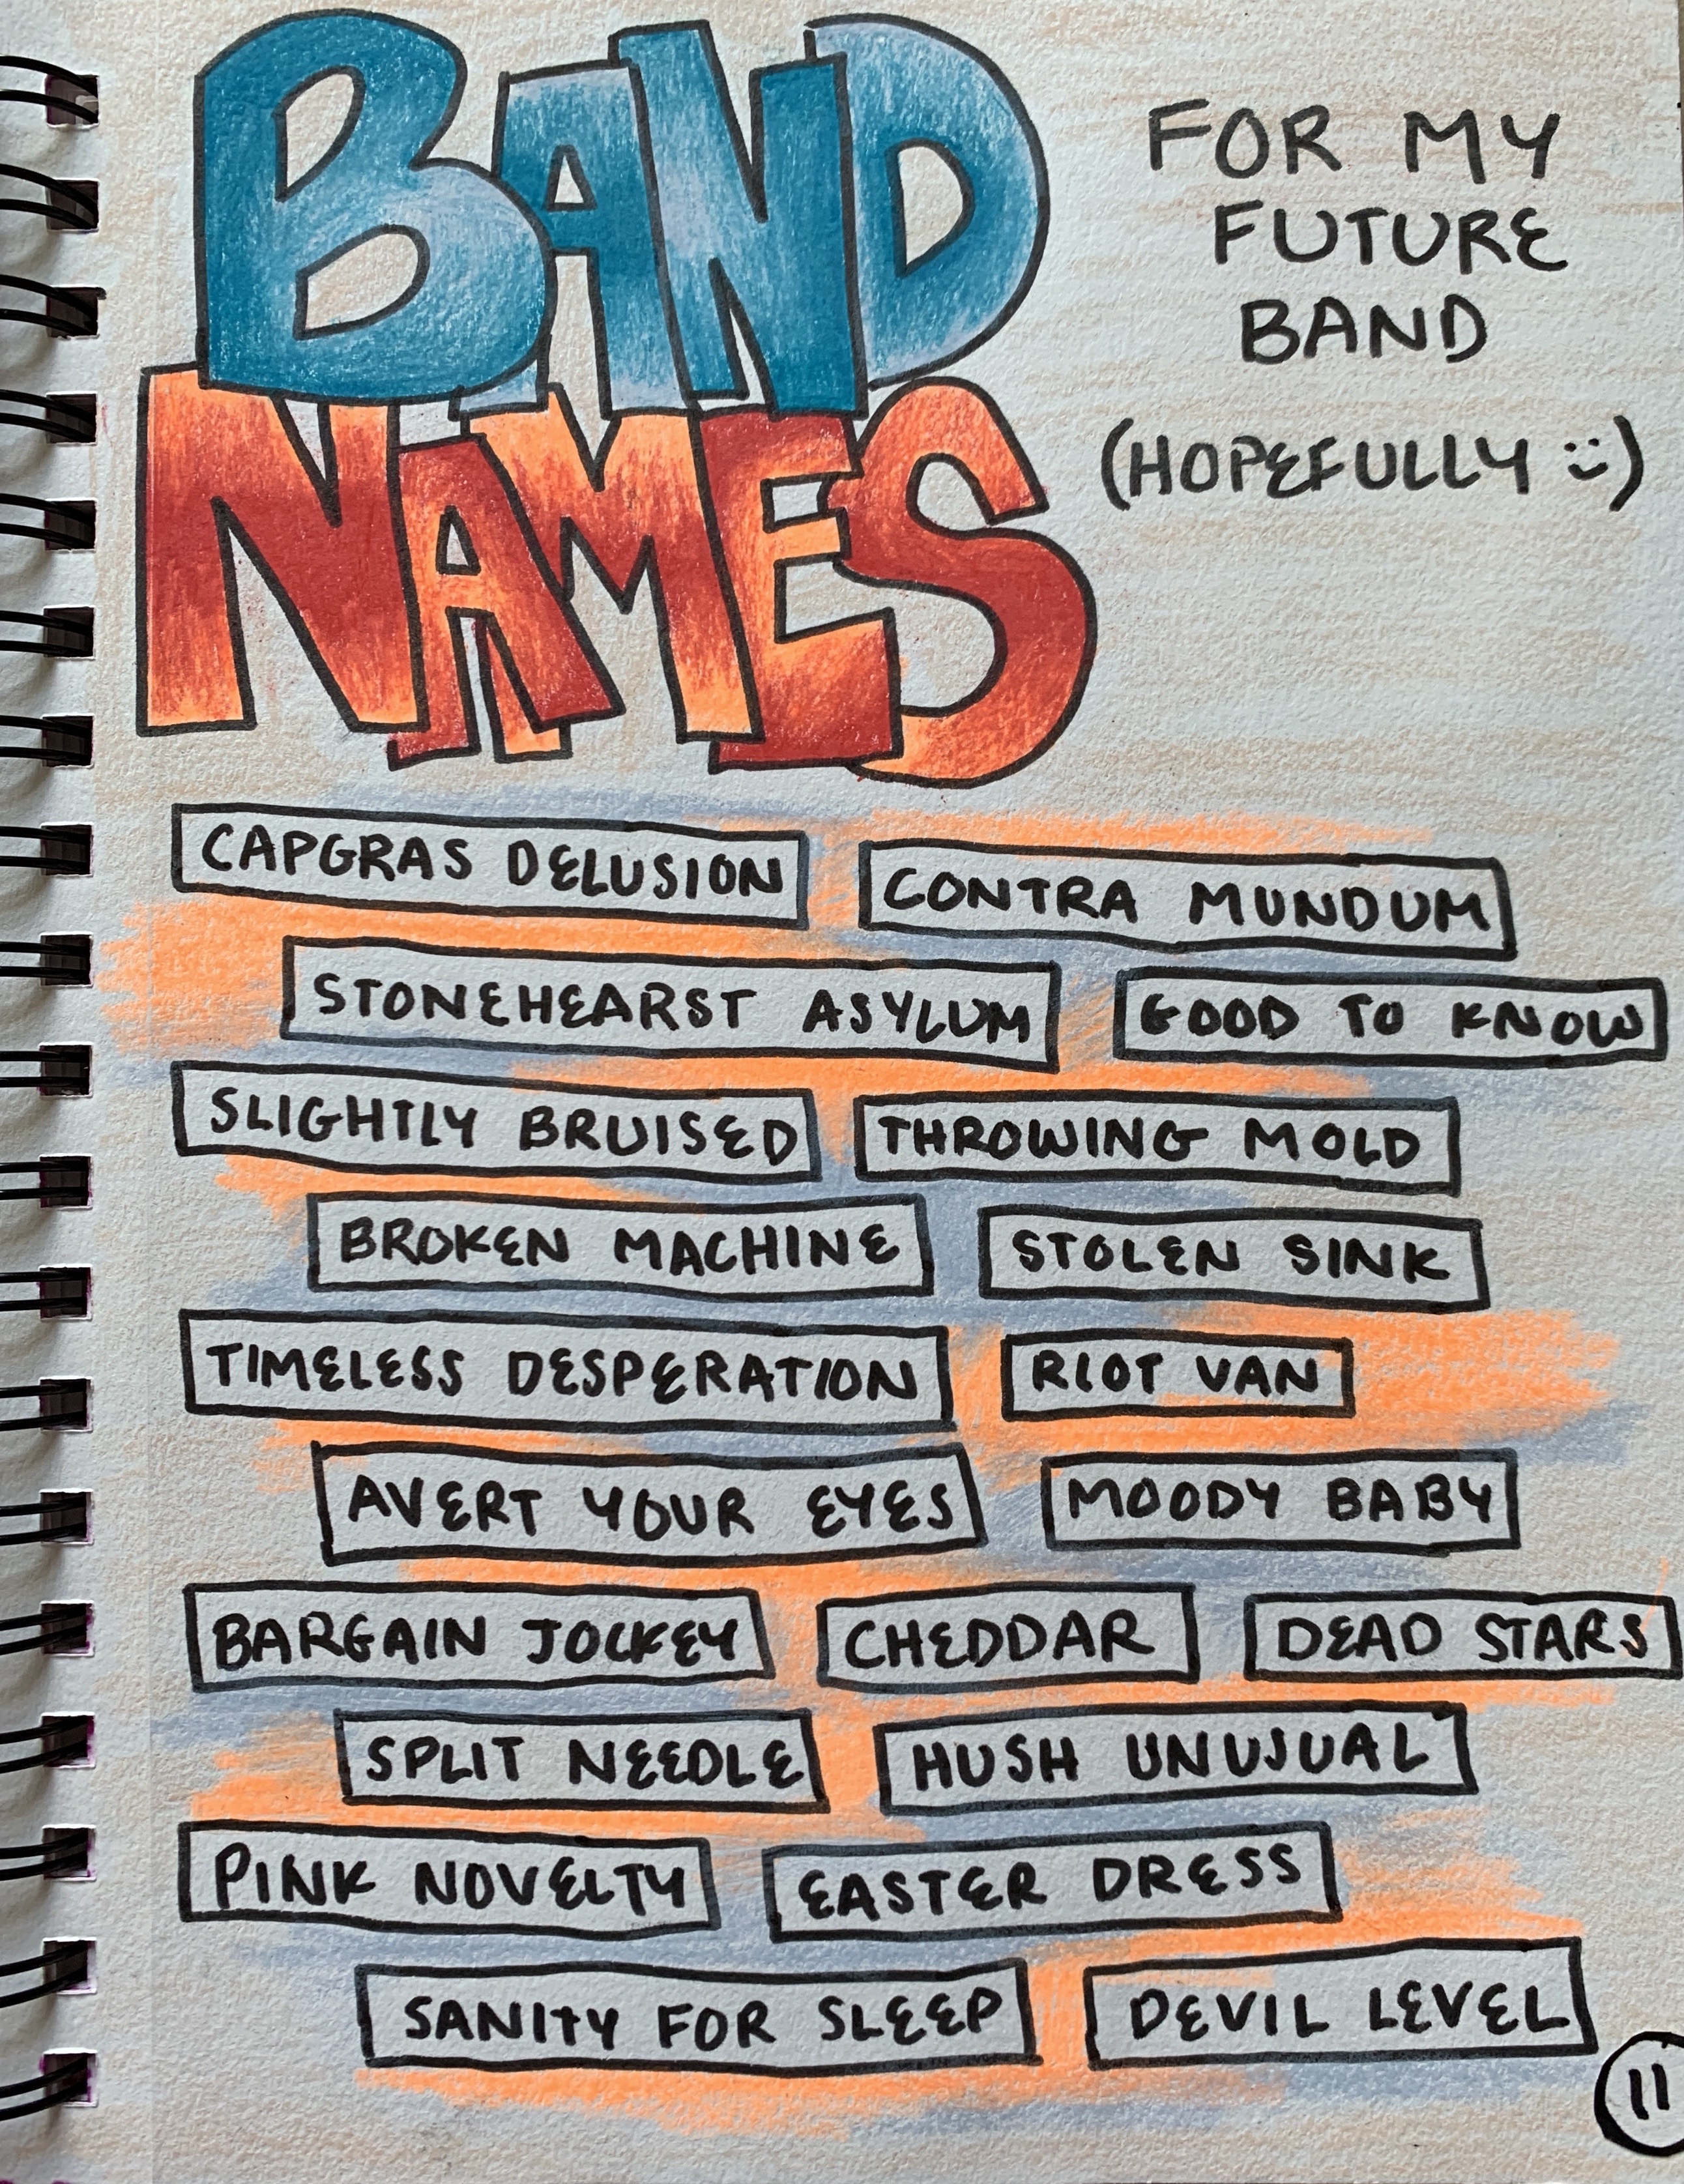 BAND
NAMES
FOR MY
FUTURE
BAND
(HOPEFULLY :))
CAPGRAS DELUSION
CONTRA MUNDUM
STONEHEARST ASYLUM
GOOD TO KNOW
SLIGHTLY BRUISED
THROWING MOLD
BROKEN MACHINE
STOLEN SINK
TIMELESS DESPERATION
RIOT VAN
AVERT YOUR EYES
MOODY BABY
BARGAIN JOCKEY
CHEDDAR
DEAD STARS
SPLIT NEEDLE
HUSH UNUSUAL
PINK NOVELTY
EASTER DRESS
SANITY FOR SLEEP
DEVIL LEVEL
11